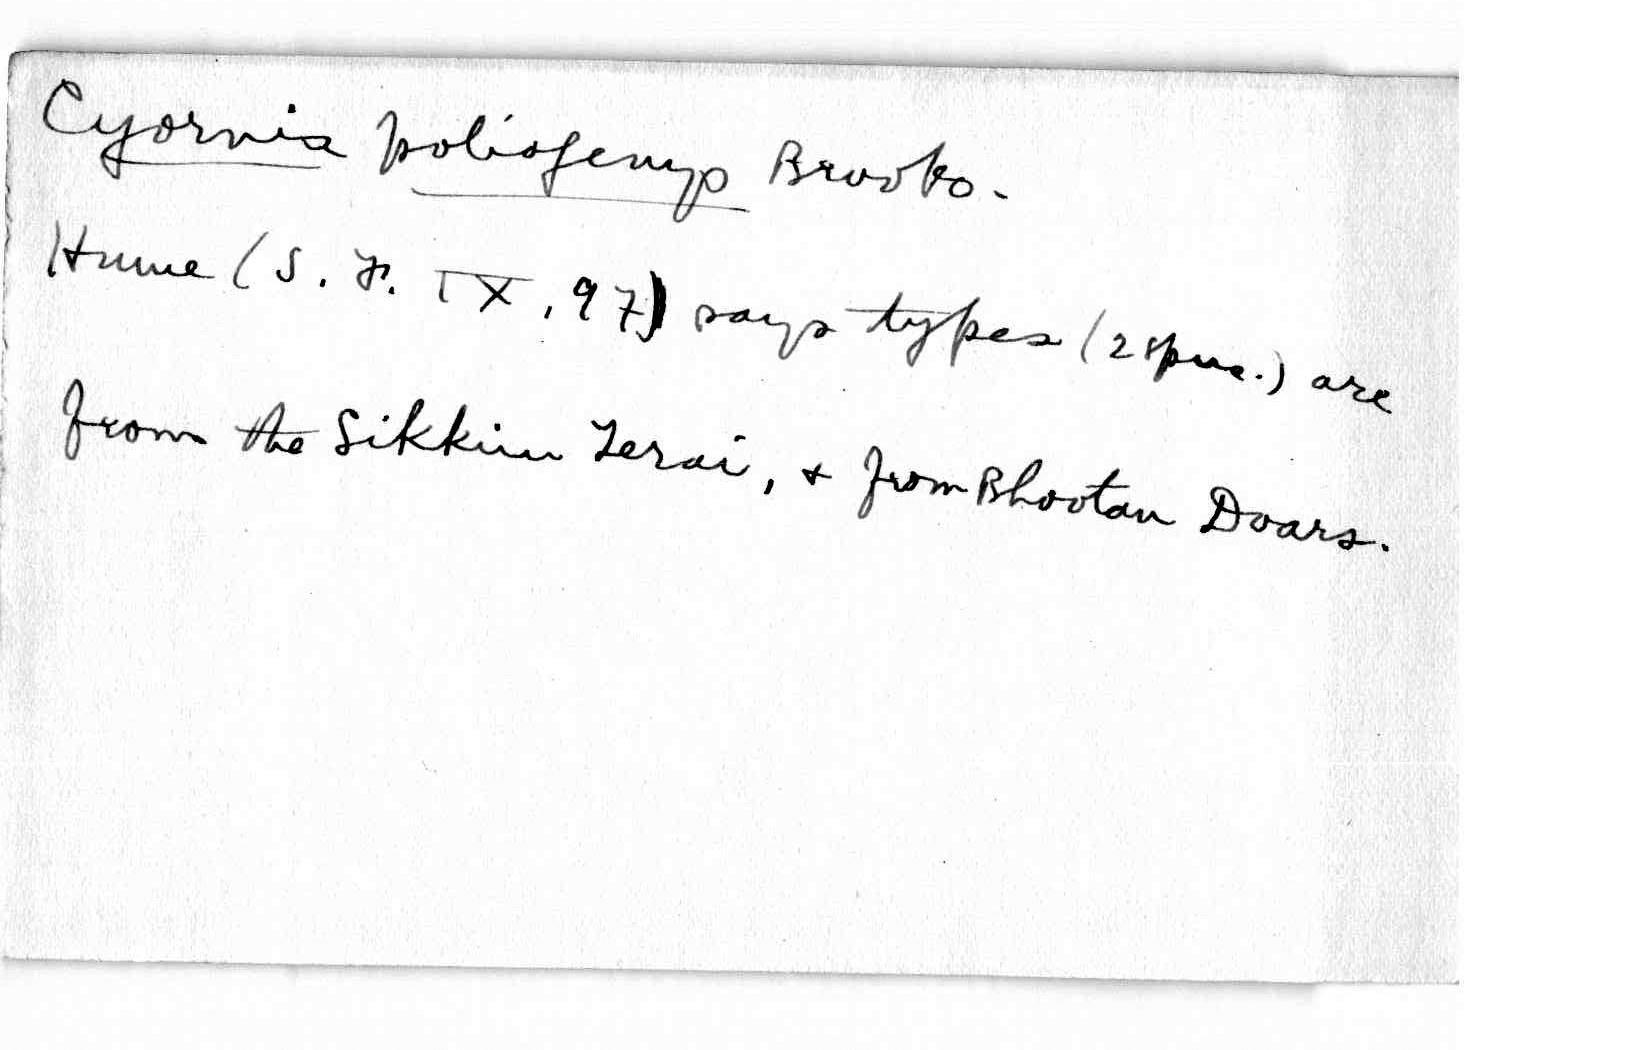 Cyornis poliogenys Brooks.
Hume (S. F. IX, 97) says types (2 spms.) are
from the Sikkim Terai, & from Bhootan Doars.